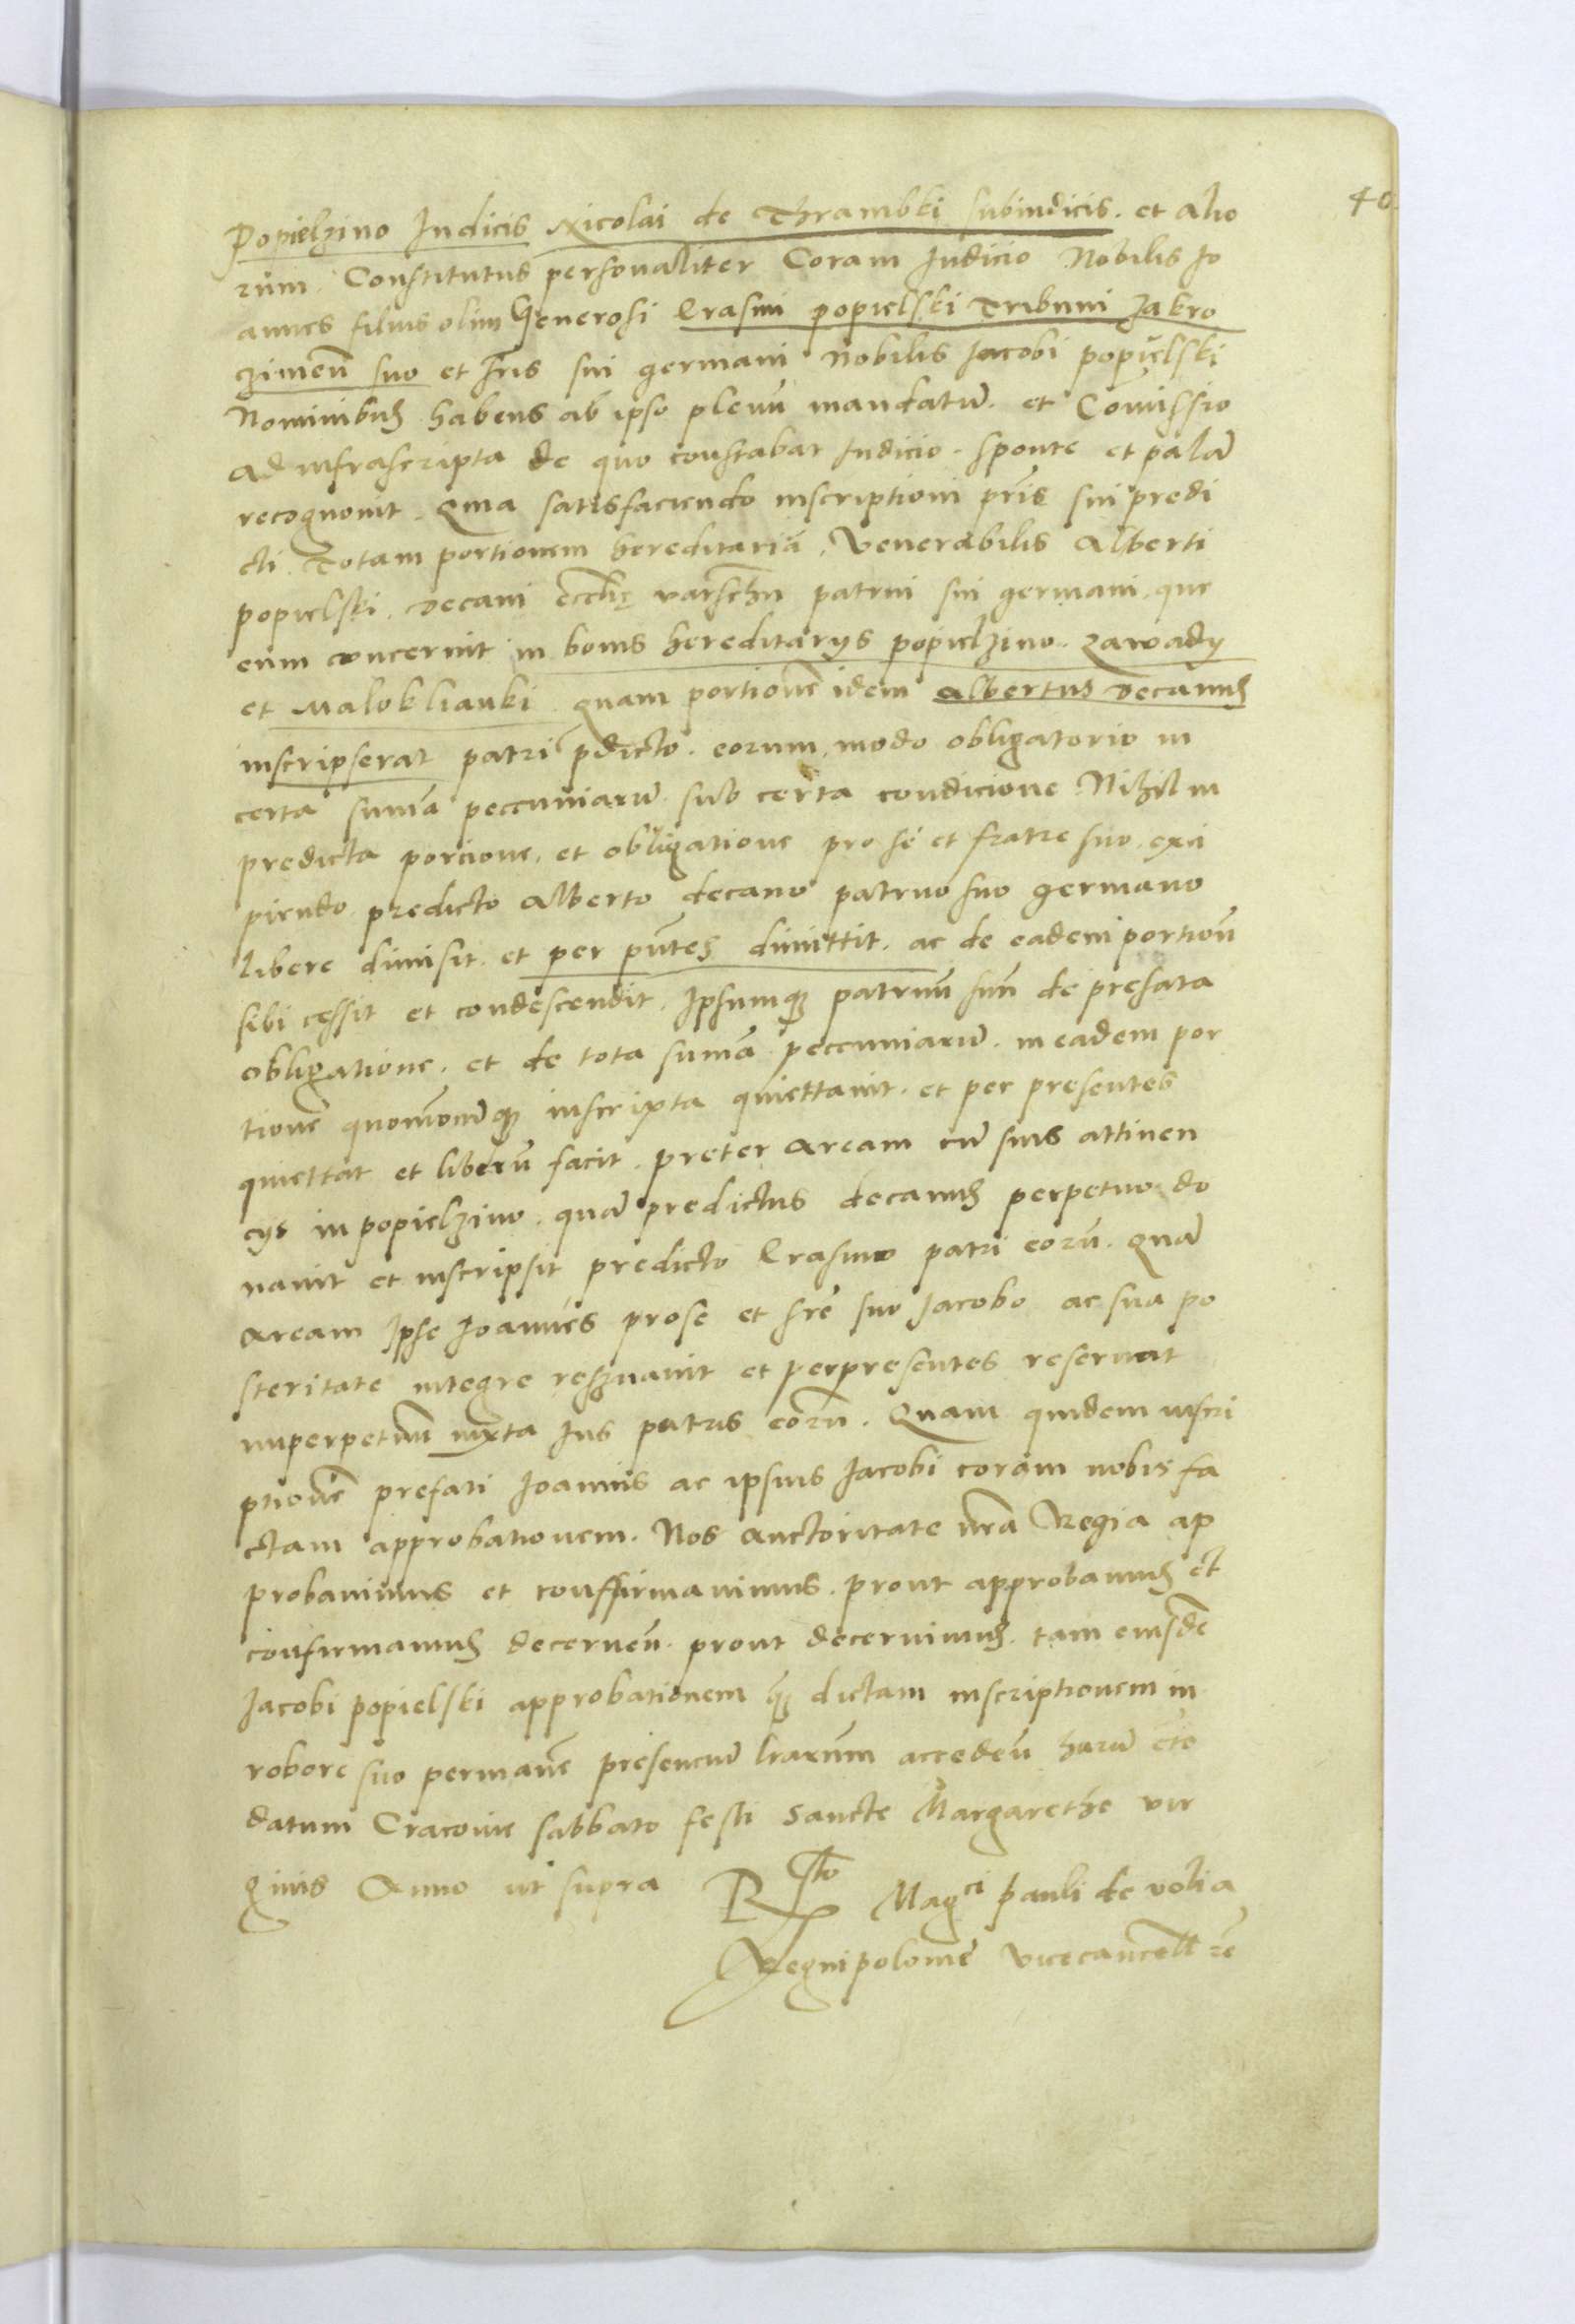 40
Popielzino Iudicis Nicolai de Thrambki subiudicis. et alio
rum. Constitutus personaliter Coram Iudicio Nobilis Jo
annes filius olim Generosi Erasmi popielski Tribuni Zakro
czimeñ suo et fr̃is sui germani Nobilis Jacobi popielski
Nominibus habens ab ipso plenũ mandatũ. et Com̃issio
ad infrascripta de quo constabat Iudicio. sponte et palã
recognovit. Quia satisfaciendo inscriptioni pr̃is sui predi
cti. Totam portionem hereditariã, Venerabilis Alberti
popielski. Decani eccl̃ie varschn̄ patrui sui germani. que
eum concernit in bonis hereditarys popielzino. Zawady
et Malokliauki quam portionẽ idem Albertus Decanus
inscripserat patri p̃dicto. eorum, modo obligatorio in
certa sum̃a peccuniarũ. sub certa condicione Nihil in
predicta porcione, et obligatione pro se et fratre suo. exci
piendo predicto Alberto decano patruo suo germano
libere dimisit. et per p̃ntes dimittit. ac de eadem portioñ
sibi cessit et condescendit. Ipsumq; patruũ suũ de prefata
obligatione. et de tota sum̃a peccuniarũ. in eadem por
tionẽ quomõcunq; inscripta quiettavit. et per presentes
quiettat et liberũ facit. preter Aream cũ suis attinen
cys in popielzino. quã predictus decanus perpetuo do
navit et inscripsit predicto Erasmo patri eorũ. quã
Aream Ipse Joannes prose et fr̃e suo Jacobo ac sua po
steritate integre reservavit et perpresentes reservat
inperpetuũ iuxta Ius patris eorũ. Quam quidem inscri
ptionẽ prefati Joannis ac ipsius Jacobi coram nobis fa
ctam approbationem. Nos auctoritate nr̃a Regia ap
probavimus et conffirmavimus. prout approbamus et
confirmamus decerneñ. prout decernimus. tam eiusdẽ
Jacobi popielski approbationem q̃; dictam inscriptionem in
robore suo permanẽ presencium l̃rarum accedeñ harũ etc̃
datum Cracovie sabbato festi Sancte Margarethe vir
ginis Anno ut supra R̃to Mag^ci pauli de volia
Regni polonie vicecancell̃ r̃e